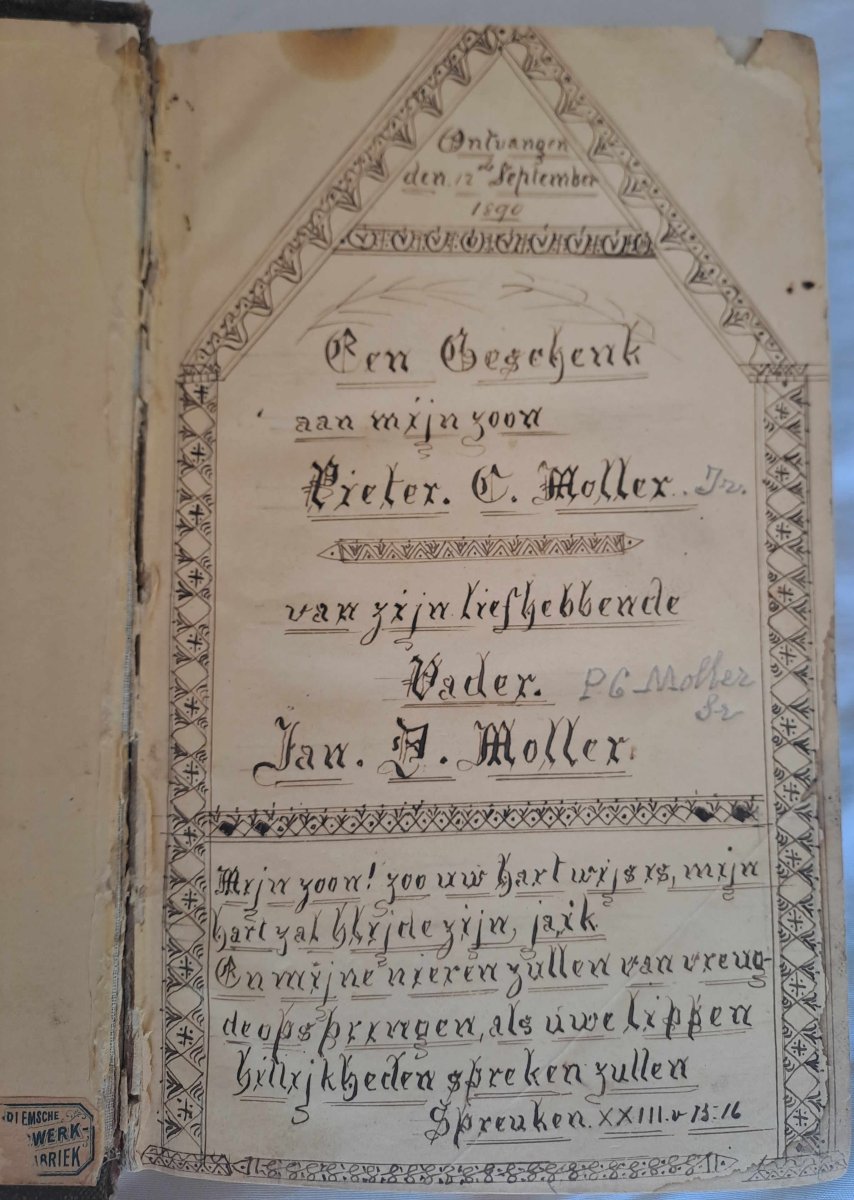 Ontvangen
den 12de September
1890
Een Geschenk
aan mijn zoon
Pieter. C. Moller. Jr.
van zijn liefhebbende
Vader. P C Moller
Sr
Jan. D. Moller.
Mijn zoon! zoo uw hart wijs is, mijn
hart zal blijde zijn, ja, ik
En mijne nieren zullen van vreug-
de opspringen, als uwe lippen
billijkheden spreken zullen
Spreuken. XXIII. v 15. 16
DIEMSCHE
WERK-
BRIEK